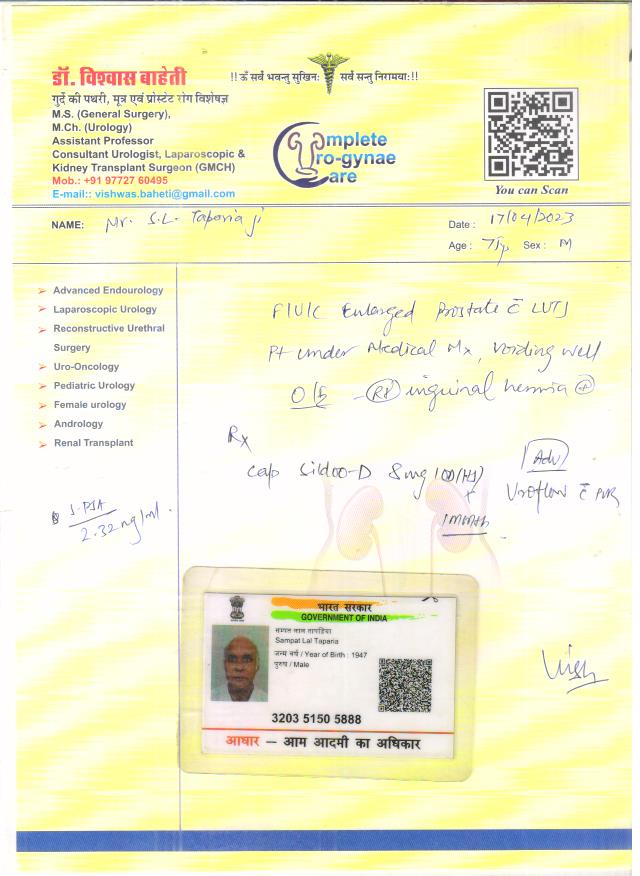 डॉ. विश्वास बाहेती
!! ॐ सर्वे भवन्तु सुखिनः सर्वे सन्तु निरामयाः !!
गुर्दे की पथरी, मूत्र एवं प्रोस्टेट रोग विशेषज्ञ
M.S. (General Surgery),
M.Ch. (Urology)
Assistant Professor
Consultant Urologist, Laparoscopic &
Kidney Transplant Surgeon (GMCH)
Mob.: +91 97727 60495
E-mail:: vishwas.baheti@gmail.com
Complete
Uro-gynae
Care
You can Scan
NAME: Mr. S.L. Taparia ji
Date : 17/04/2023
Age : 75y Sex : M
Advanced Endourology
Laparoscopic Urology
Reconstructive Urethral
Surgery
Uro-Oncology
Pediatric Urology
Female urology
Andrology
Renal Transplant
S. PSA
2.32 ng/ml.
F/U/C Enlarged Prostate c̄ LUTS
Pt under Medical Mx, voiding well
O/E - (Rt) inguinal hernia (+)
Rx
Cap Sildoo-D 8mg (HS)
x
1 month
Adv
Uroflow c̄ PVR
भारत सरकार
GOVERNMENT OF INDIA
सम्पत लाल तापड़िया
Sampat Lal Taparia
जन्म वर्ष / Year of Birth : 1947
पुरुष / Male
3203 5150 5888
आधार — आम आदमी का अधिकार